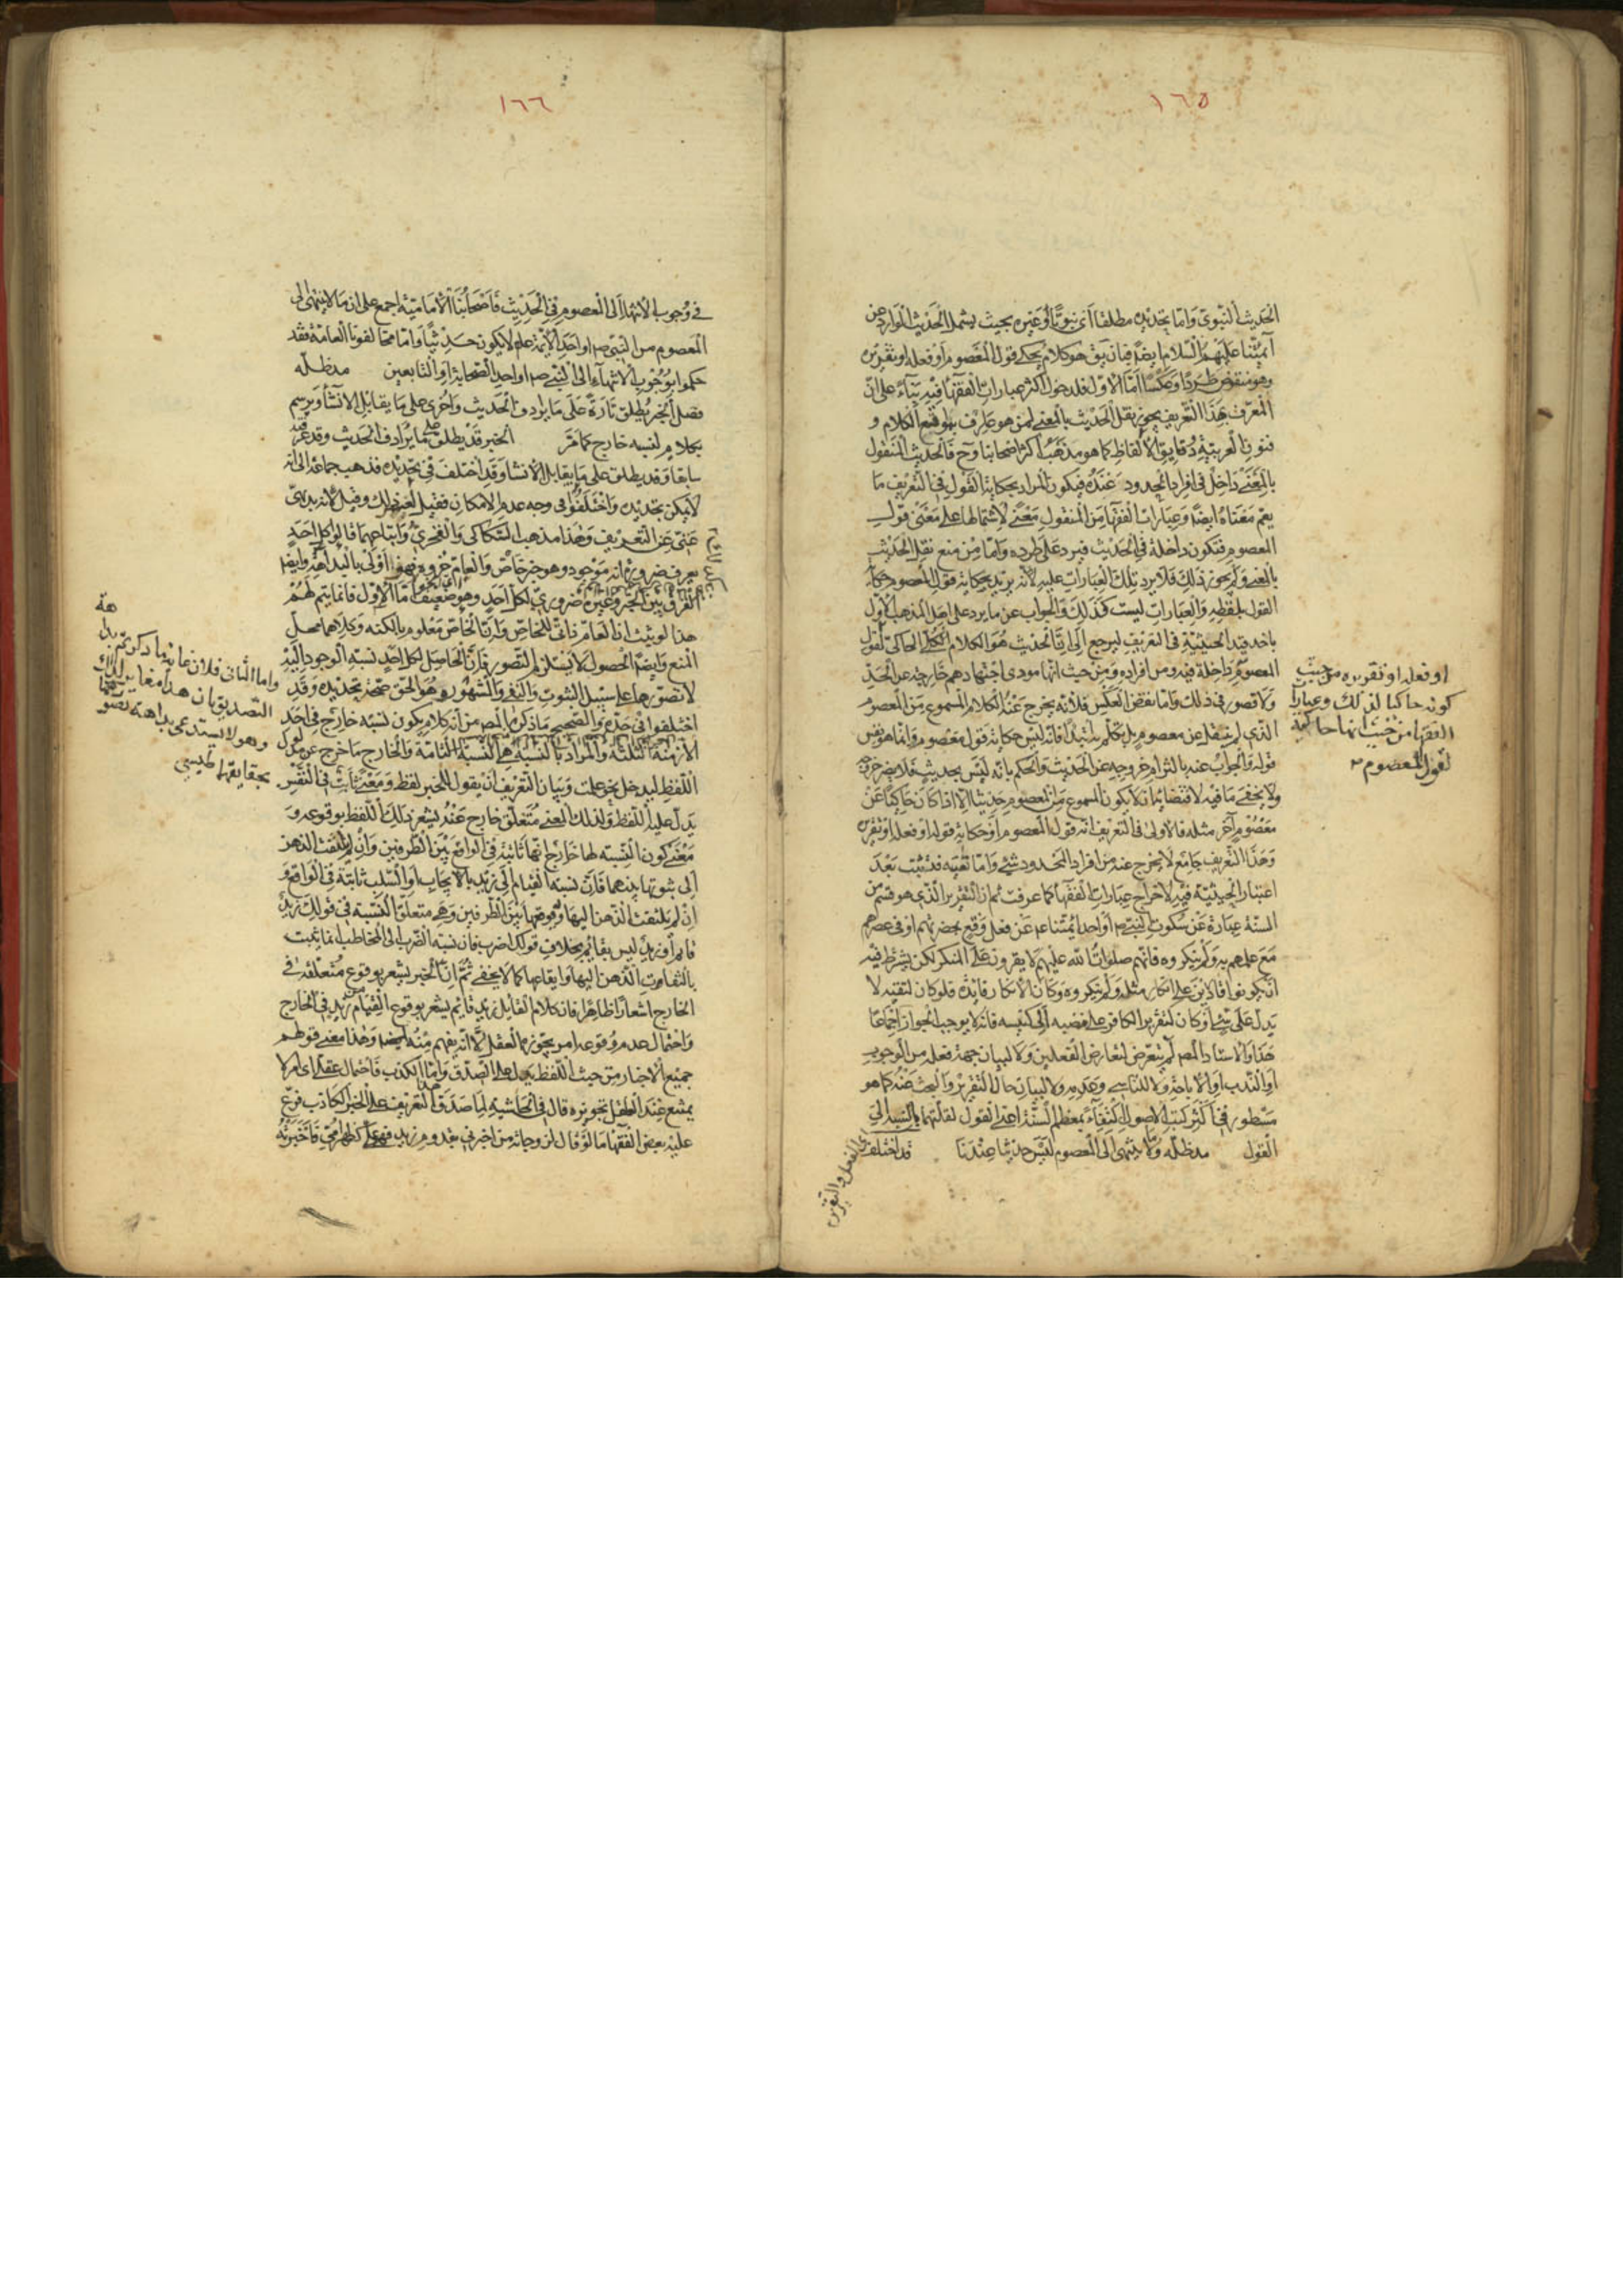 ١٦٥
الحديث النبوي واما تحديده مطلقا اى نبويا او غيره بحيث يشمل الحديث الوارد عن
ائمتنا عليهم السلام ايضا فبان يق هو كلام يحكى قول المعصوم او فعله او تقريره
وهو منتقض طردا وعكسا اما الاول فلدخول اكثر عبارات الفقهاء فيه بناء على ان
المعرف بهذا التعريف يجوز نقل الحديث بالمعنى لمن هو عارف بمواقع الكلام و
فنون العربية ودقايق الالفاظ كما هو مذهب اكثر اصحابنا وح فالحديث المنقول
بالمعنى داخل فى افراد المحدود عنده فيكون المراد بحكاية القول فى التعريف ما
يعم معناه ايضا وعبارات الفقهاء من المنقول معنى لاشتمالها على معنى قول
المعصوم فتكون داخلة فى الحديث فيرد على طرده واما من منع نقل الحديث
بالمعنى ولم يجوز ذلك فلا يرد تلك العبارات عليه لانه يريد بحكاية قول المعصوم حكاية
القول بلفظه والعبارات ليست كذلك والجواب عن ما يرد على اهل المذهب الاول
باخذ قيد الحيثية فى التعريف ليرجع الى ان الحديث هو الكلام الحاكى لقول
المعصوم داخلة فيه ومن افراده ومن حيث انها مودى اجتهادهم خارجة عن الحد
ولا قصور فى ذلك واما نقض العكس فلانه يخرج عنه الكلام المسموع من المعصوم
الذى لم ينقل عن معصوم بل تكلم به ابتداء فانه ليس حكاية قول معصوم وانما هو نفس
قوله والجواب عنه بالتزام خروجه عن الحديث والحكم بانه ليس بحديث فلا يضر خروجه
ولا يخفى ما فيه لاقتضائه ان لا يكون المسموع من المعصوم حديثا الا اذا كان حاكيا عن
معصوم آخر مثله فالاولى فى التعريف انه قول المعصوم او حكاية قوله او فعله او تقريره
وهذا التعريف جامع لا يخرج عنه من افراد المحدود شئ واما نقيه فتثبت بعد
اعتبار الحيثية فيه لاخراج عبارات الفقهاء كما عرفت ثم ان التقرير الذى هو قسم من
السنة عبارة عن سكوت النبى ص او احد ائمتنا ع عن فعل وقع بحضرتهم او فى عصرهم
مع علمهم به ولم ينكروه فانهم صلوات الله عليهم لا يقرون على المنكر لكن يشترط فيه
ان يكونوا قادرين على انكار مثله ولم ينكروه وكان الانكار فايدة فلو كان لتقية لا
يدل على شئ او كان كتقرير الكافر على مضيه الى كنيسه فانه لا يوجب الجواز اجماعا
هذا والاستاد المص لم يتعرض لتعارض الفعلين ولا لبيان جهة فعله من الوجوب
او الندب او الاباحة ولا للتاسى وعدمه ولا لبيان حال التقرير والبحث عنه كما هو
مسطور فى اكثر كتب الاصول اكتفاء بمعظم السنة اعنى القول لقلتهما بالنسبة الى
القول مد ظله وما لا ينتهى الى المعصوم ليس حديثا عندنا قد اختلف
او فعله او تقريره من حيث
كونه حاكيا لذلك وعبارات
الفقهاء من حيث انها حاكية
لقول المعصوم
الفعل والتقرير
١٦٦
فى وجوب الانتهاء الى المعصوم فى الحديث فاصحابنا الامامية اجمع على ان ما لا ينتهى الى
المعصوم من النبى ص او احد الائمة ع لا يكون حديثا واما مخالفونا العامة فقد
حكموا بوجوب الانتهاء الى النبى ص او احد الصحابة او التابعين مد ظله
فصل الخبر يطلق تارة على ما يرادف الحديث واخرى على ما يقابل الانشاء ويرسم
بكلام لنسبه خارج كما مر الخبر قد يطلق على ما يرادف الحديث وقد عرفته
سابقا وقد يطلق على ما يقابل الانشا وقد اختلف فى تحديده فذهب جماعة الى انه
لا يمكن تحديده واختلفوا فى وجه عدم الامكان فقيل لعسر ذلك وقيل لانه بديهى
غنى عن التعريف وهذا مذهب السكاكى والفخرى واتباعهما قالوا كل احد
يعرف ضرورة انه موجود وهو خبر خاص والعام جزوه فهو اولى بالبداهة وايضا
الفرق بين الخبر وغيره ضرورى لكل احد وهو ضعيف اما الاول فانما يتم لهم
هذا لو ثبت ان العام ذاتى للخاص وان الخاص معلوم بالكنه وكلاهما محل
المنع وايضا الحصول لا يستلزم التصور فان الحاصل لكل احد نسبة الوجود اليه
لا تصورها على سبيل الثبوت والنفى والمشهور وهو الحق صحة تحديده وقد
اختلفوا فى حده والصحيح ما ذكره المص من انه كلام يكون لنسبه خارج فى احد
الازمنة الثلثة والمراد بالنسبة هى النسبة التامة والخارج ما خرج عن مدلول
اللفظ ليدخل نحو علمت وبيان التعريف ان يقول للخبر لفظ ومعنى ثابت فى النفس
يدل عليه اللفظ ولذلك المعنى متعلق خارج عنه يشعر ذلك اللفظ بوقوعه و
معنى كون النسبة لها خارج انها ثابتة فى الواقع بين الطرفين وان لم يلتفت الذهن
الى ثبوتها بينهما فان نسبة القيام الى زيد بالايجاب او السلب ثابتة فى الواقع و
ان لم يلتفت الذهن اليها ووقوعها بين الطرفين وهى متعلق النسبة فى قولك زيد
قائم او زيد ليس بقائم بخلاف قولك اضرب فان نسبة الضرب الى المخاطب انما يثبت
بالتفات الذهن اليها وايقاعها كما لا يخفى ثم ان الخبر يشعر بوقوع متعلقه فى
الخارج اشعارا ظاهرا فان كلام القايل زيد قايم يشعر بوقوع القيام من زيد فى الخارج
واحتمال عدم وقوعه امر يجوزه العقل لا انه يفهم منه ايضا وهذا معنى قولهم
جميع الاخبار من حيث اللفظ يدل على الصدق واما الكذب فاحتمال عقلى اى لا
يمتنع عند العقل تجويزه قال فى الحاشية لما صدق هذا التعريف على الخبر الكاذب فرع
عليه بعض الفقها ما لو قال لزوجاته من اخبرنى بقدوم زيد فهى على كظهر امى فاخبرته
واما الثانى فلان غاية ما ذكرتم بداهة
التصديق بان هذا مغاير لذلك
وهو لا يستدعى بداهة تصورهما
بحقايقهما